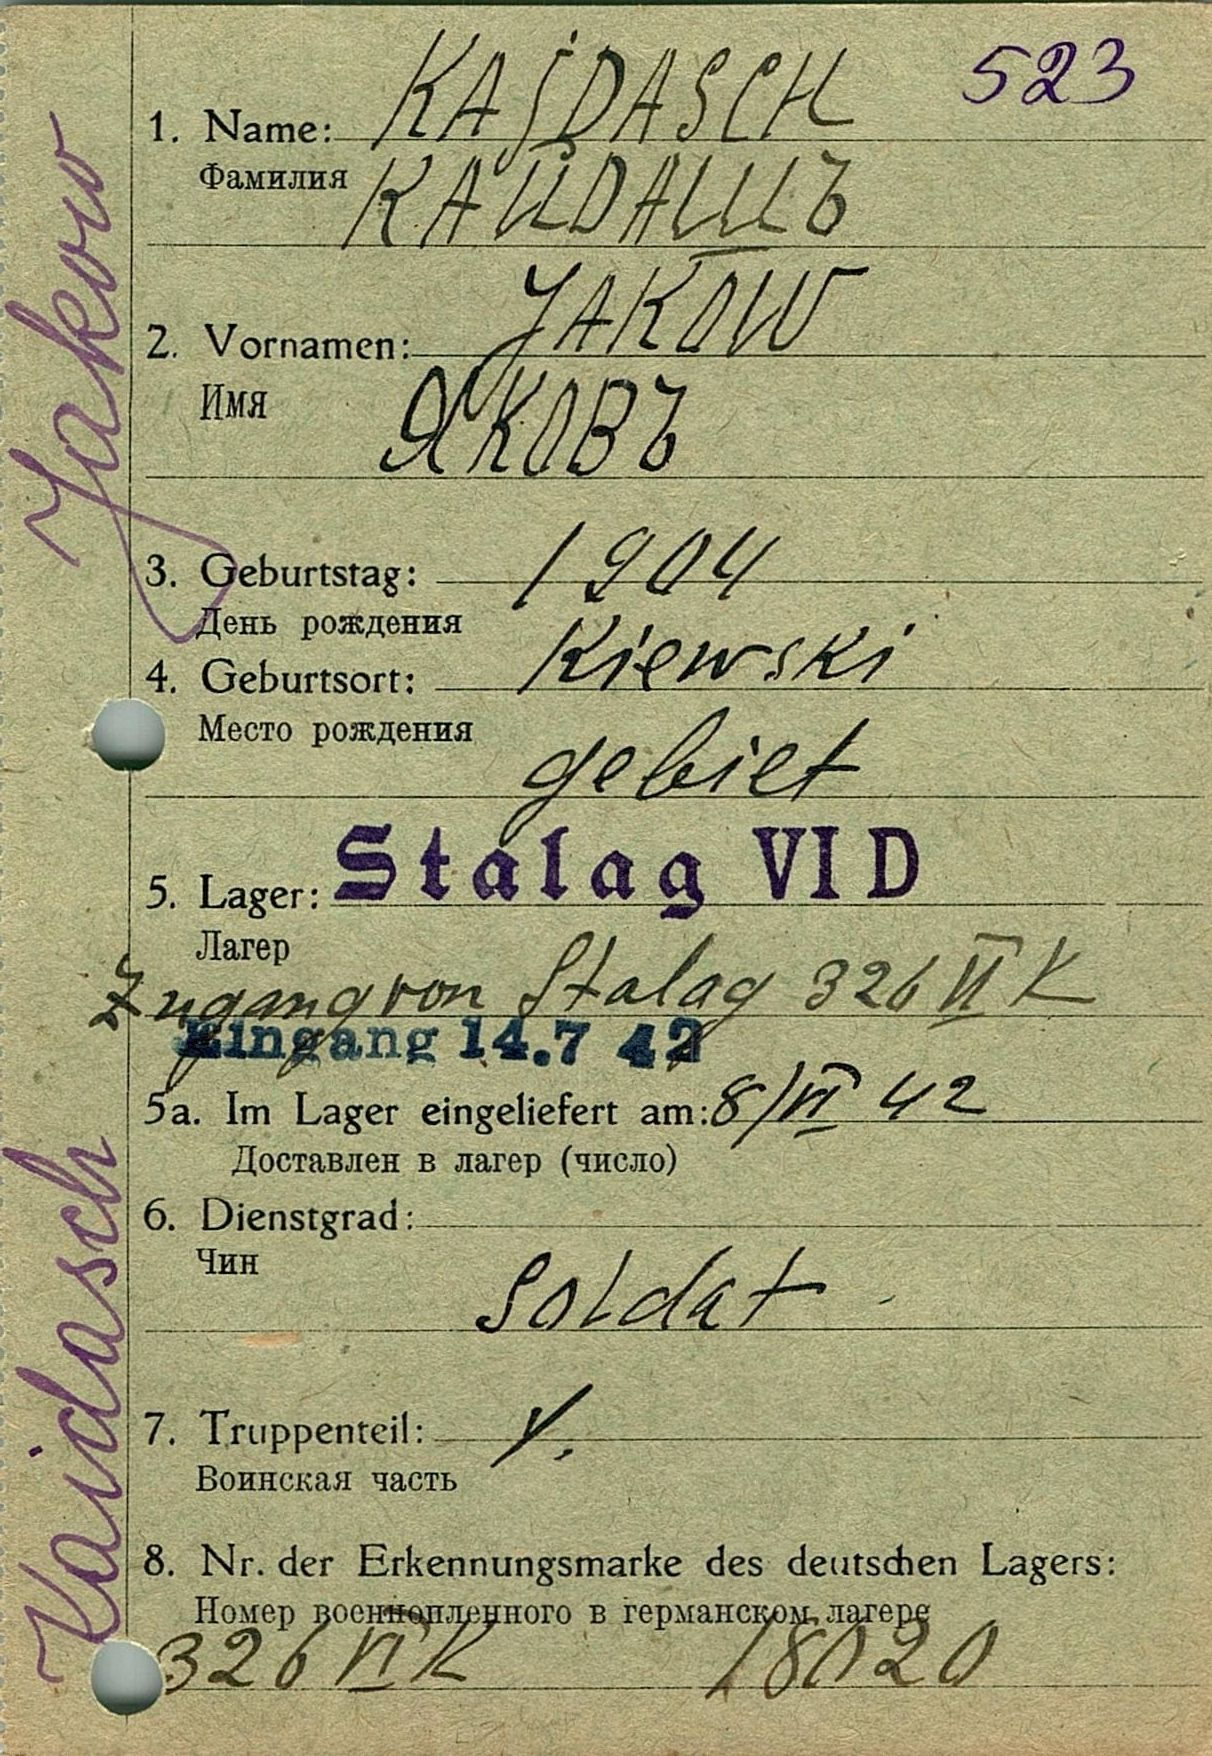 523
1. Name: KAJDASCH
Фамилия КАЙДАШЪ
2. Vornamen: JAKOW
Имя ЯКОВЪ
3. Geburtstag: 1904
День рождения
4. Geburtsort: Kiewski
Место рождения
gebiet
5. Lager: Stalag VI D
Лагер
Zugang von Stalag 326 VI K
Eingang 14.7 42
5a. Im Lager eingeliefert am: 8/VI 42
Доставлен в лагер (число)
6. Dienstgrad:
Чин
Soldat
7. Truppenteil:
Воинская часть
8. Nr. der Erkennungsmarke des deutschen Lagers:
Номер военнопленного в германском лагере
326 VI K 18020
Kaidasch Jakow